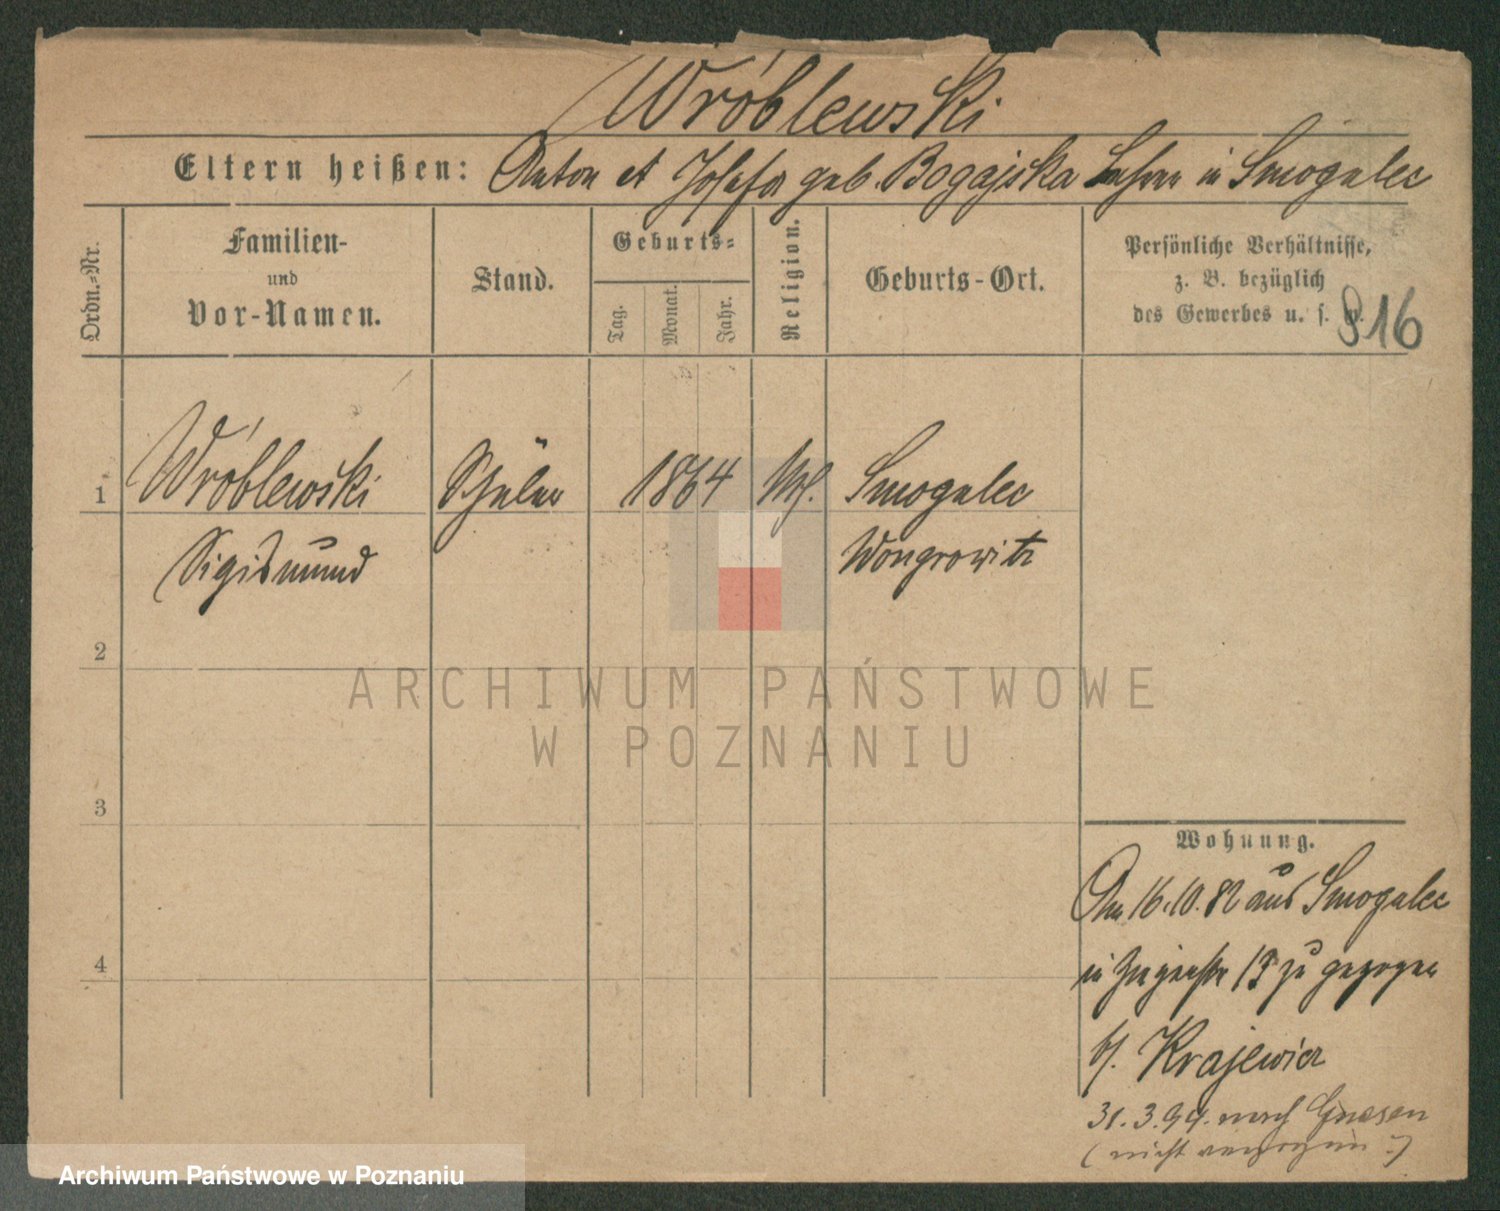 Wróblewski
Eltern heißen: Anton et Josefa geb. Bogajska Lehrer in Smogulec
Ordn.=Nr.
Familien-
und
Vor-Namen.
Stand.
Geburts=
Tag.
Monat.
Jahr.
Religion.
Geburts-Ort.
Persönliche Verhältnisse,
z. B. bezüglich
des Gewerbes u. s. w.
916
1
Wróblewski
Schüler
1864
Smogulec
Sigismund
Wongrowitz
2
3
4
Wohnung.
Am 16.10.82 aus Smogulec
in 15 zu gezogen
b/. Krajewicz
31.3.94. nach Gnesen
(nicht
ARCHIWUM PAŃSTWOWE
W POZNANIU
Archiwum Państwowe w Poznaniu